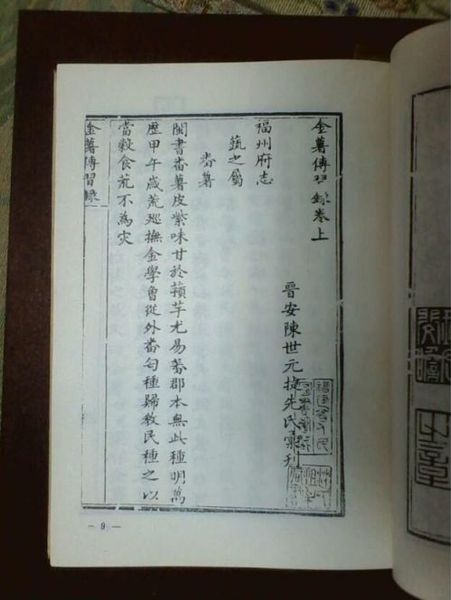 金薯傳習錄卷上
晋安陳世元捷先氏彙刋
福州府志
蔬之屬
畨薯
閩書畨薯皮紫味甘於薯芋尤易蕃郡本無此種明萬
歷甲午歲荒廵撫金學曾從外畨匄種歸教民種之以
當榖食荒不為灾
金薯傳習錄
— 9 —